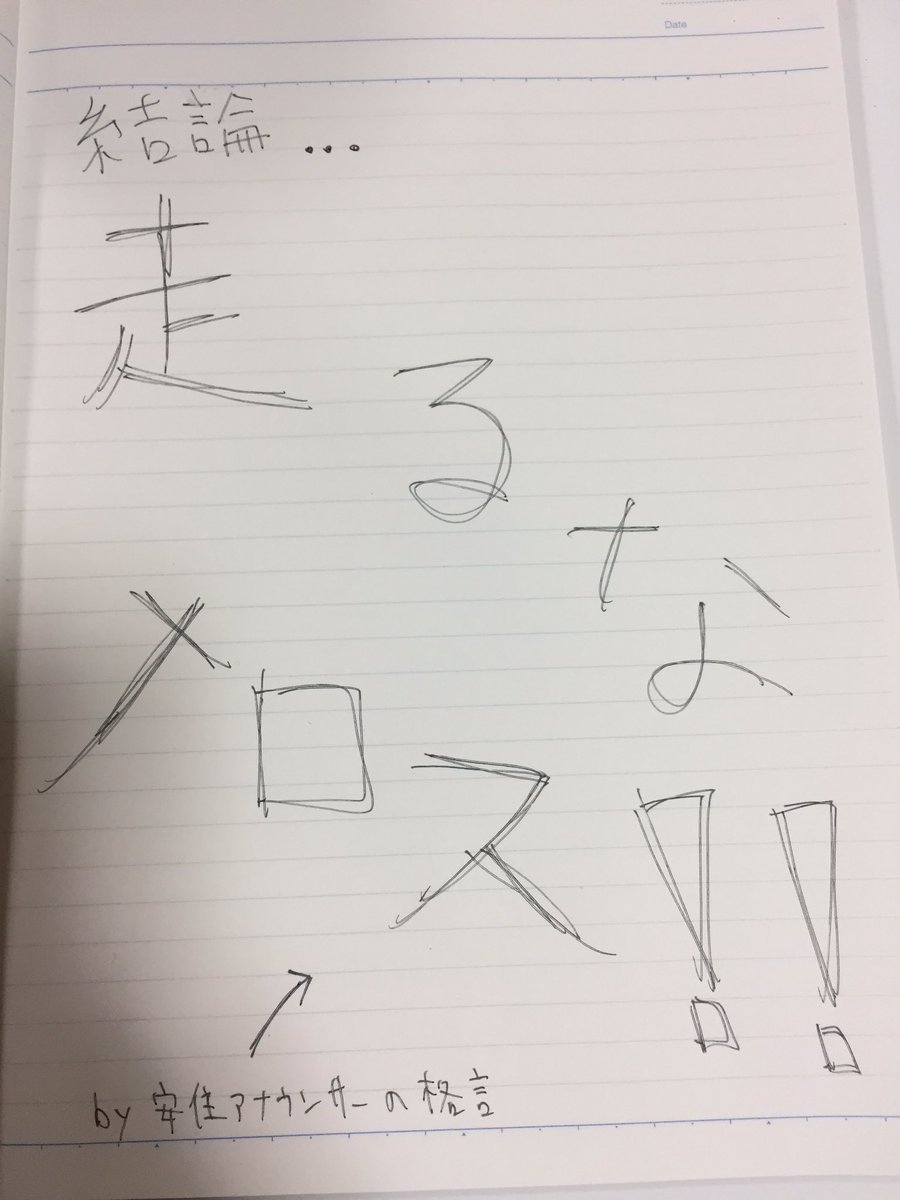 Date
結論...
走るな
メロス!!
by 安住アナウンサーの格言